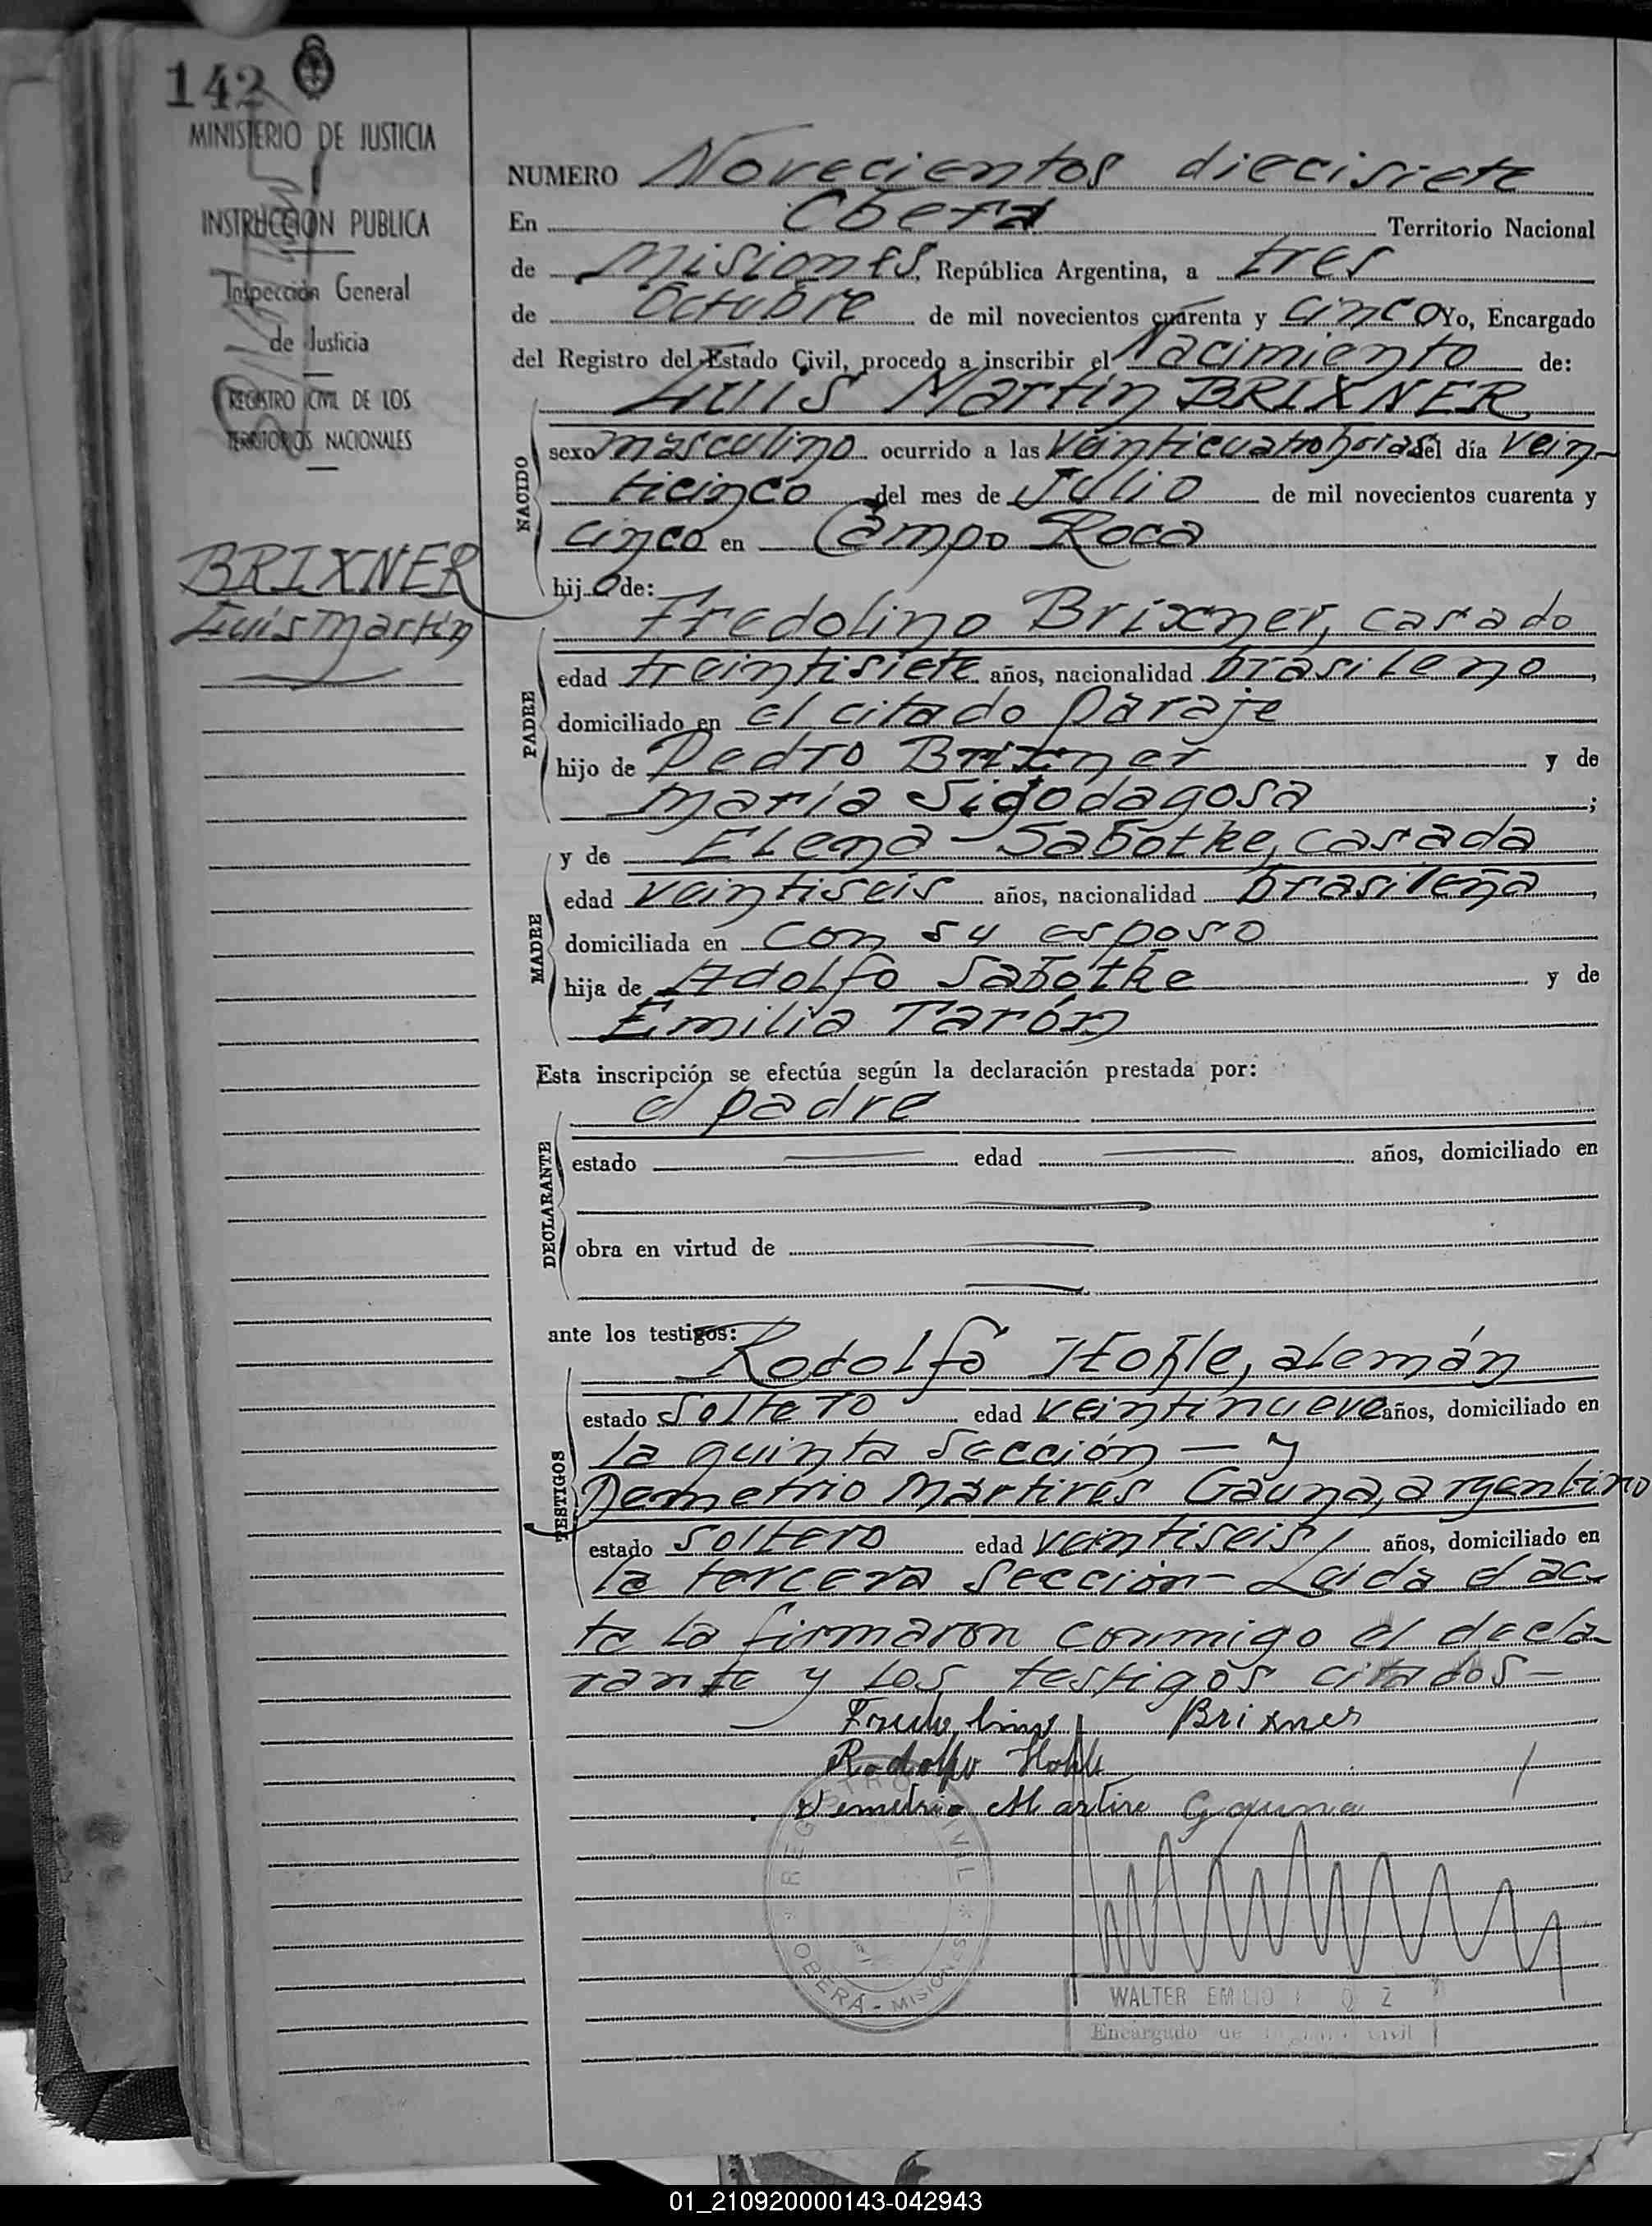 142
MINISTERIO DE JUSTICIA
INSTRUCCION PUBLICA
Inspección General
de Justicia
REGISTRO CIVIL DE LOS
TERRITORIOS NACIONALES
BRIXNER
Luis Martin
NUMERO Novecientos diecisiete
En Oberá Territorio Nacional
de Misiones, República Argentina, a tres
de Octubre de mil novecientos cuarenta y cinco Yo, Encargado
del Registro del Estado Civil, procedo a inscribir el Nacimiento de:
Luis Martin BRIXNER
NACIDO
sexo masculino ocurrido a las veinticuatro horas del día vein-
ticinco del mes de Julio de mil novecientos cuarenta y
cinco en Campo Roca
hijo de:
Fredolino Brixner, casado
PADRE
edad treintisiete años, nacionalidad brasileno,
domiciliado en el citado paraje
hijo de Pedro Brixner y de
Maria Sigodagosa;
y de Elena Sabotke, casada
MADRE
edad veintiseis años, nacionalidad brasileña,
domiciliada en con su esposo
hija de Adolfo Sabotke y de
Emilia Tarón
Esta inscripción se efectúa según la declaración prestada por:
el padre
DECLARANTE
estado edad años, domiciliado en
obra en virtud de
ante los testigos:
Rodolfo Hohle, alemán
TESTIGOS
estado soltero edad veintinueve años, domiciliado en
la quinta Sección — y
Demetrio Martires Gauna, argentino
estado soltero edad veintiseis, años, domiciliado en
la tercera Sección - Leida el ac-
ta la firmaron conmigo el decla-
rante y los testigos citados -
Fredolino Brixner
Rodolfo Hohle
Demetrio Martire Gauna
REGISTRO CIVIL
OBERÁ - MISIONES
WALTER EMILIO
Encargado de Civil
01_210920000143-042943